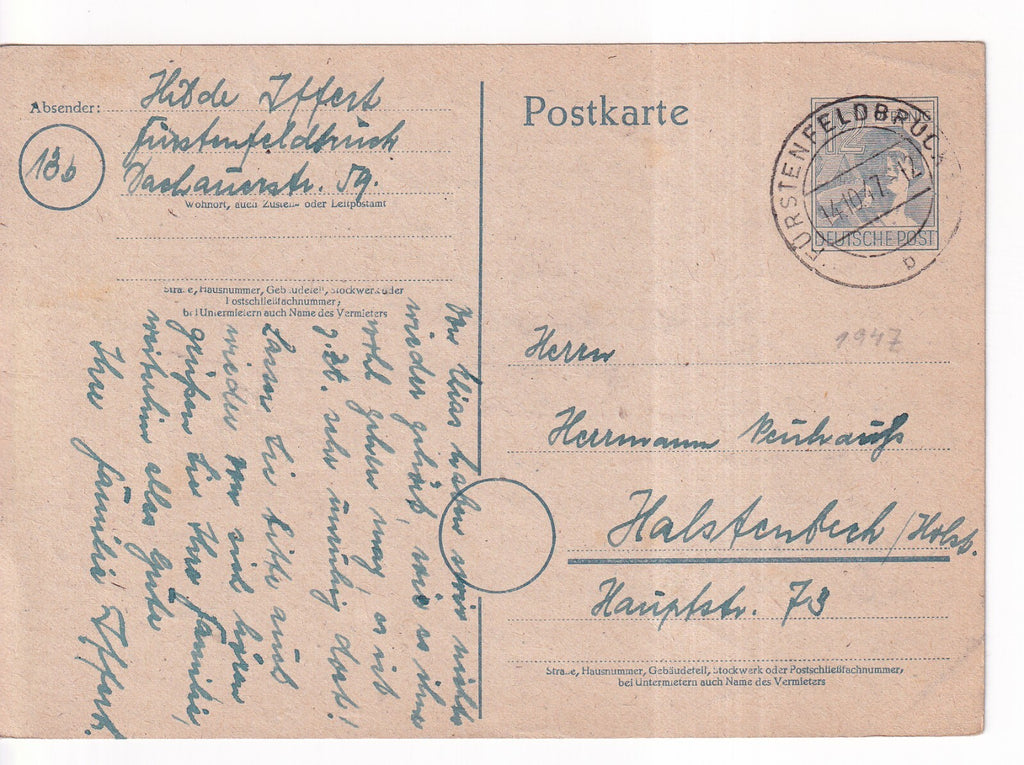 Absender: Hilde Iffert
Fürstenfeldbruck
13b
Dachauerstr. 59.
Wohnort, auch Zustell- oder Leitpostamt
Straße, Hausnummer, Gebäudeteil, Stockwerk oder
Postschließfachnummer;
bei Untermietern auch Name des Vermieters
Postkarte
12
DEUTSCHE POST
FÜRSTENFELDBRUCK
14.10.47. 12
b
1947
Herrn
Herrmann
Halstenbech/Holst.
Hauptstr. 73
Straße, Hausnummer, Gebäudeteil, Stockwerk oder Postschließfachnummer;
bei Untermietern auch Name des Vermieters
Von haben wir nichts
wieder gehört, wie es ihm
wohl gehen mag, es ist
z. Zt. sehr unruhig dort!
Lassen Sie bitte auch
wieder von sich hören
grüßen Sie Ihre Familie,
weiterhin alles Gute
Ihre Familie Iffert.